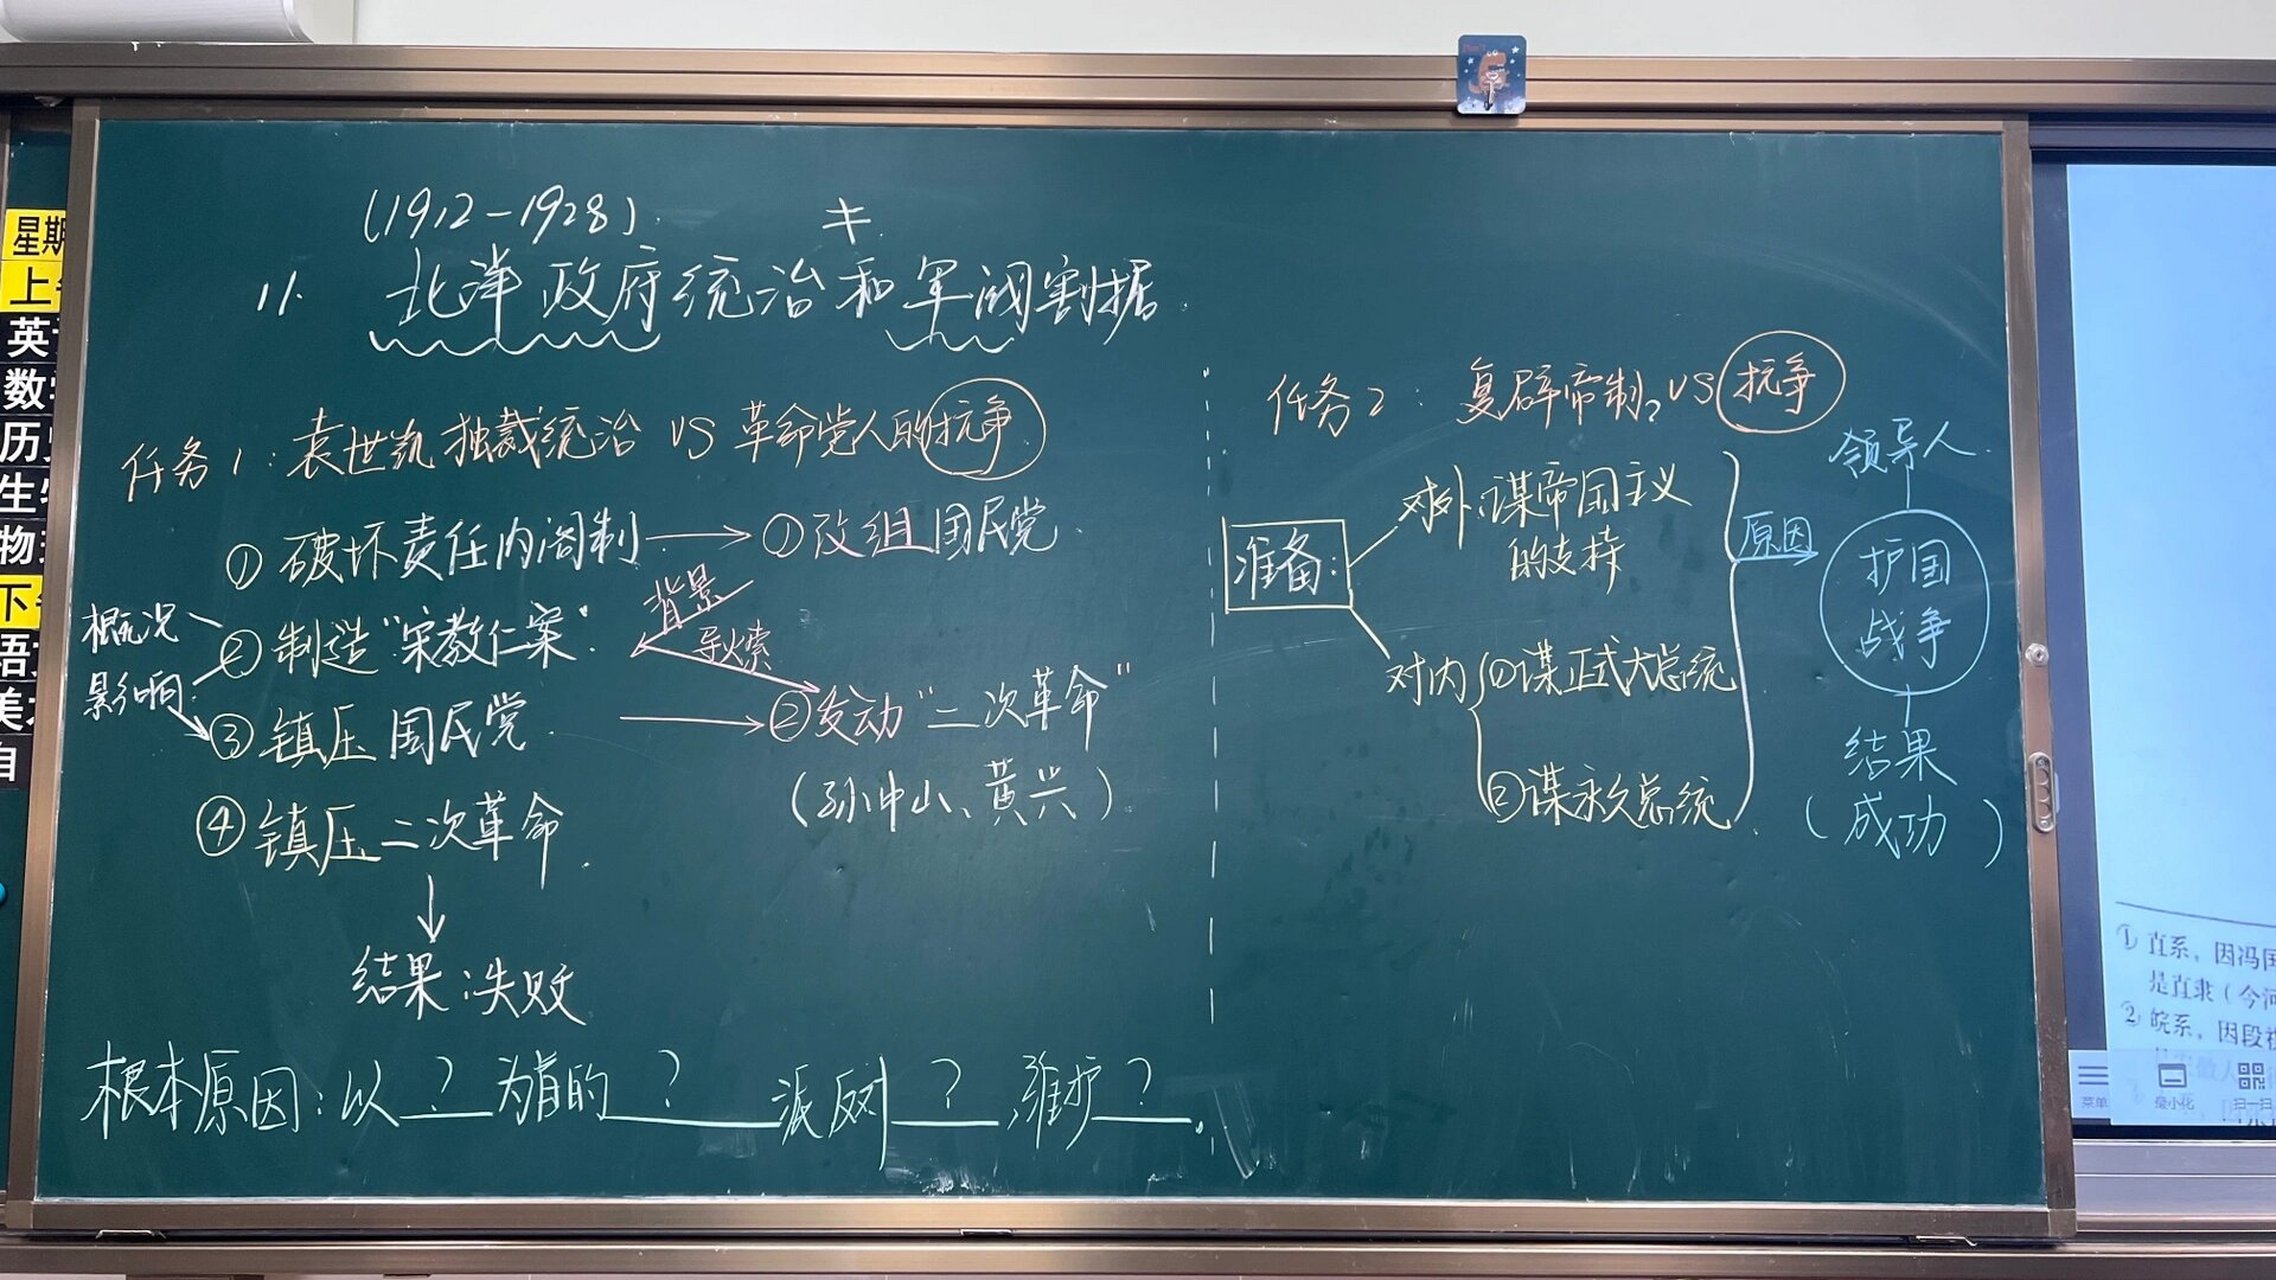 (1912-1928)
11. 北洋政府统治和军阀割据
任务1：袁世凯独裁统治 VS 革命党人的抗争
①破坏责任内阁制 → ①改组国民党
概况
②制造“宋教仁案”
背景
导火索
影响
③镇压国民党 → ②发动“二次革命”
(孙中山、黄兴)
④镇压二次革命
↓
结果：失败
根本原因：以 ? 为首的 ? 派反对 ? ，维护 ? 。
任务2：复辟帝制 VS 抗争
准备：
对外：谋帝国主义
的支持
对内 ①谋正式大总统
②谋永久总统
原因
领导人
护国
战争
结果
(成功)
星期
上
英
数
历
生
物
下
语
美
自
① 直系，因冯国
是直隶（今河
② 皖系，因段祺
菜单
最小化
扫一扫